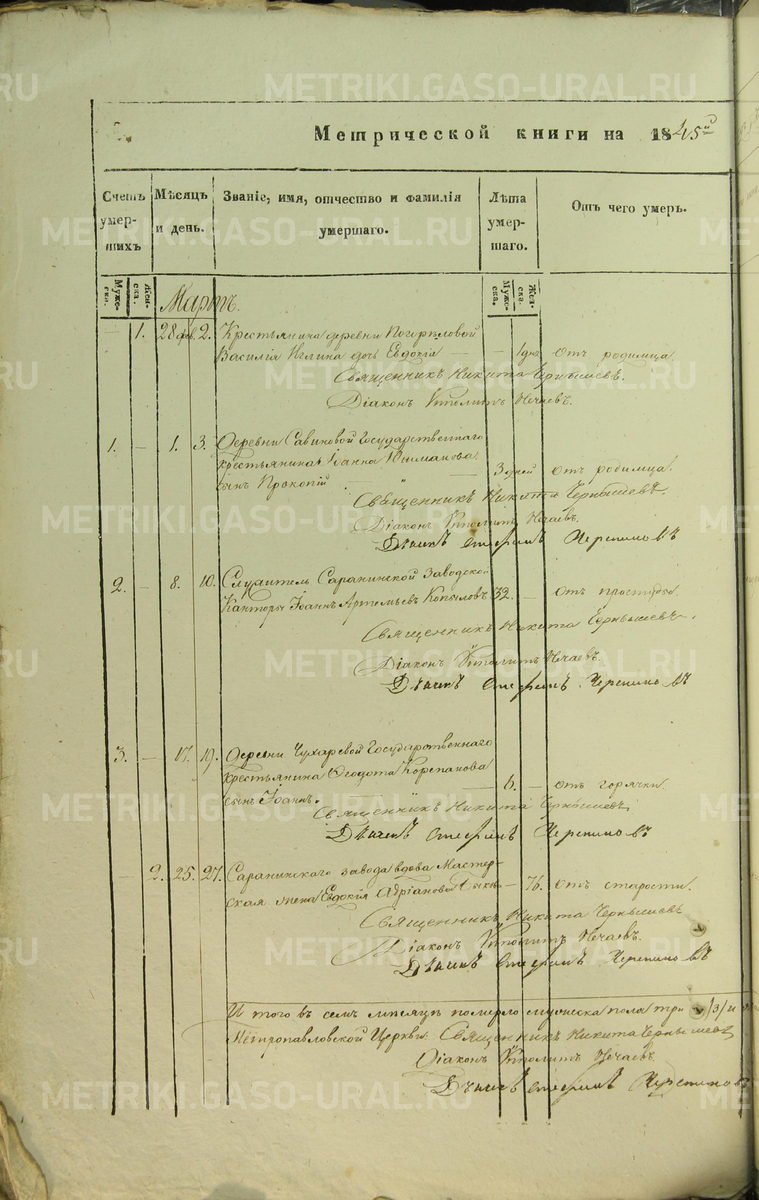 METRIKI.GASO-URAL.RU
Метрической книги на 1845й
Счетъ умер- шихъ
Мѣсяцъ и день.
Званіе, имя, отчество и фамилія умершаго.
Лѣта умер- шаго.
Отъ чего умеръ.
Муже- ска.
Жен- ска.
Муже- ска.
Жен- ска.
Мартъ.
— 1. 28 фев. 2. Крестьянина деревни
Василія дочь Евдокія — — 1 дня отъ родимца.
Священникъ Никита Чернышевъ.
Діаконъ Ипполитъ Нечаевъ.
1. — 1. 3. Деревни Савиновой Государственнаго
крестьянина Іоанна
сынъ Прокопій 3 дней отъ родимца.
Священникъ Никита Чернышевъ.
Діаконъ Ипполитъ Нечаевъ.
Дьячекъ Стефанъ Черепановъ
2. — 8. 10. Служитель Саранинской Заводской
Канторы Іоаннъ Артемьевъ Копыловъ 32. — отъ простуды.
Священникъ Никита Чернышевъ.
Діаконъ Ипполитъ Нечаевъ.
Дьячекъ Стефанъ Черепановъ
3. — 17. 19. Деревни Чухаревой Государственнаго
крестьянина Корепанова
сынъ Іоаннъ. 6. — отъ горячки.
Священникъ Никита Чернышевъ
Дьячекъ Стефанъ Черепановъ
— 2. 25. 27. Саранинскаго завода вдова Мастер-
ская жена Евдокія Адріанова — 76. отъ старости.
Священникъ Никита Чернышевъ
Діаконъ Ипполитъ Нечаевъ.
Дьячекъ Стефанъ Черепановъ
И того въ семъ мѣсяцѣ померло мужеска пола три /3/ и
Петропавловской Церкви: Священникъ Никита Чернышевъ
Діаконъ Ипполитъ Нечаевъ.
Дьячекъ Стефанъ Черепановъ